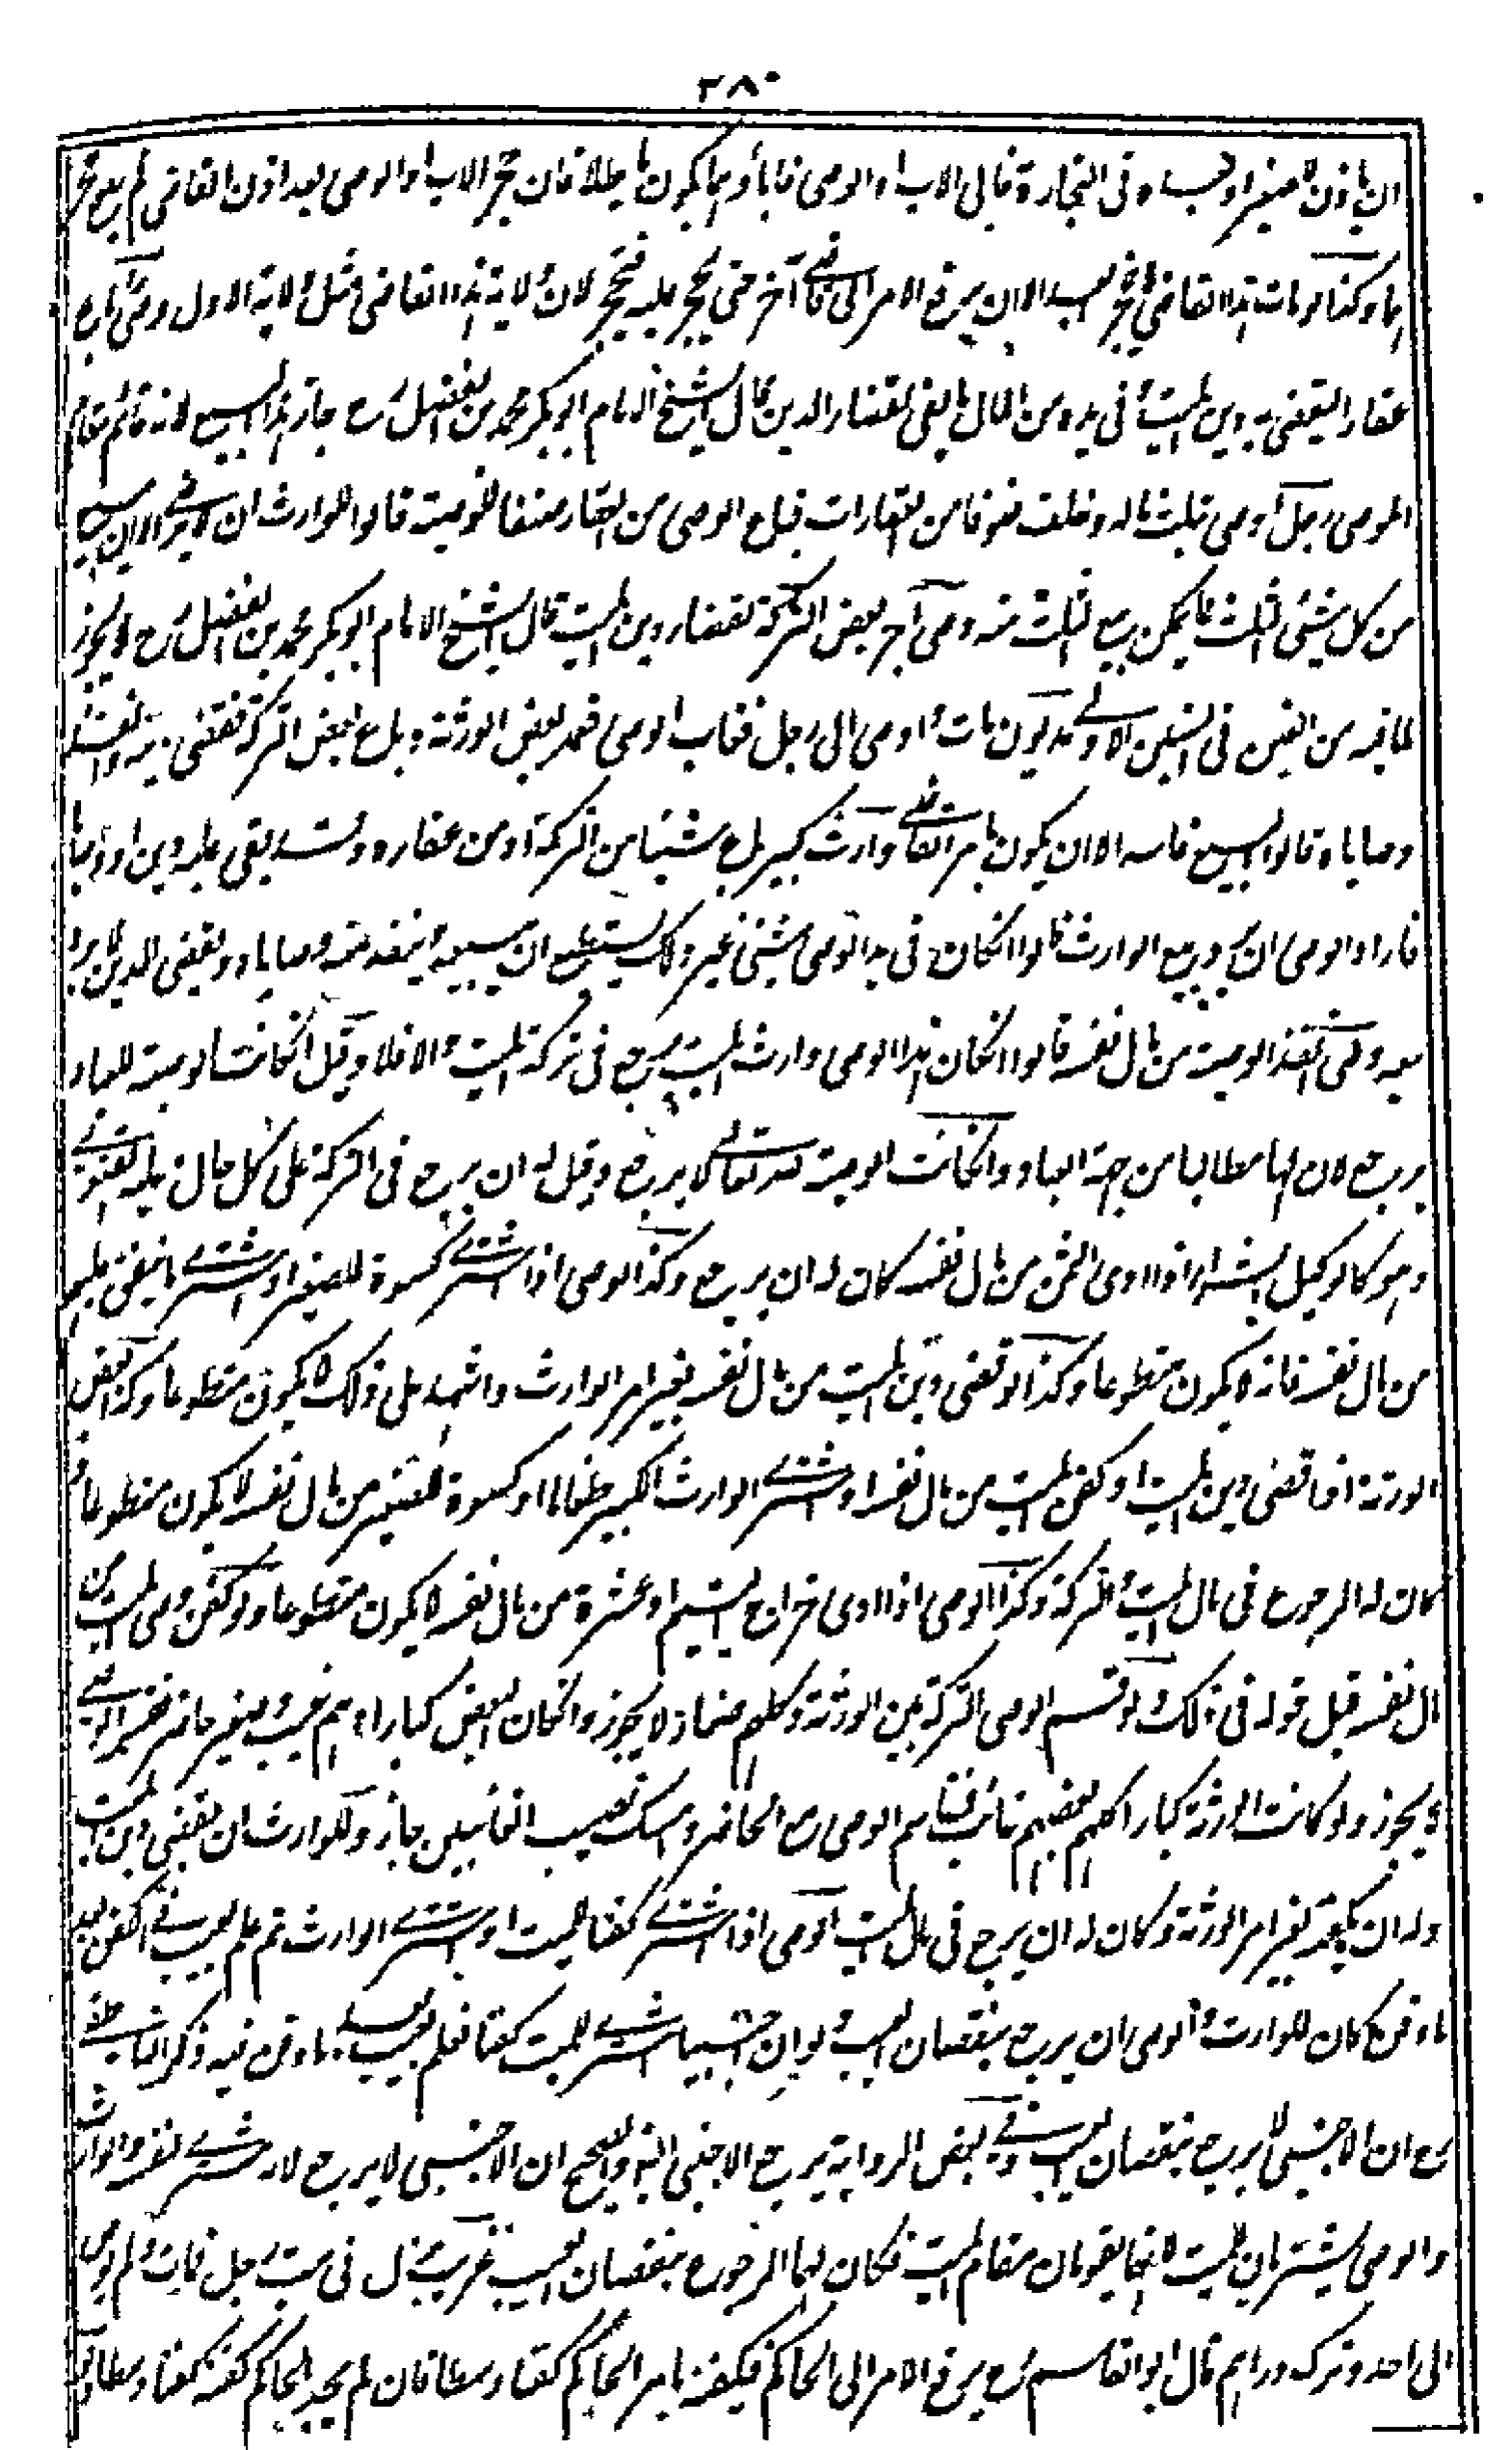 ٣٨٠
ان ياذن للصغير او عبده فى التجارة فابى الاب او الوصى فاباؤهما يكون باطلا فان حجر الاب او الوصى بعد اذن القاضى لم يصح حجر
هما وكذا لو مات هذا القاضى لا ينحجر العبد الا ان يرفع الامر الى قاض آخر حتى يحجر عليه فينحجر لان ولاية هذا القاضى مثل ولاية الاول وصى باع
عقارا ليقضى به دين الميت وفى يده من المال ما يفى لقضاء الدين قال الشيخ الامام ابو بكر محمد بن الفضل رح جاز هذا البيع لانه قائم مقام
الموصى رجل اوصى بثلث ماله وخلف صنوفا من العقارات فباع الوصى من العقار صنفا للوصية قالوا للوارث ان لا يرضى الا ان يبيع
من كل شيئ الثلث مما يمكن بيع الثلث منه وصى آجر بعض التركة لقضاء دين الميت قال الشيخ الامام ابو بكر محمد بن الفضل رح لا يجوز
لما فيه من الغبن فى السنين الاولى مديون مات واوصى الى رجل فغاب الوصى فعمد بعض الورثة وباع بعض التركة فقضى دينه وانفذ
وصاياه قالوا البيع فاسد الا ان يكون بامر القاضى وارث كبير باع شيئا من التركة او من عقاره وقد بقى عليه دين او وصايا
فاراد الوصى ان يرد بيع الوارث قالوا ان كان فى يد الوصى شيئ غير ذلك يستطيع ان يبيعه وينفذ منه وصاياه ويقضى الدين لا يرد
بيعه وصى انفذ الوصية من مال نفسه قالوا ان كان هذا الوصى وارث الميت يرجع فى تركة الميت والا فلا وقيل ان كانت الوصية للعباد
يرجع لان لها مطالبا من جهة العباد وان كانت الوصية لله تعالى لا يرجع وقيل له ان يرجع فى التركة على كل حال وعليه الفتوى
وهو كالوكيل بالشراء اذا ادى الثمن من مال نفسه كان له ان يرجع وكذا الوصى اذا اشترى كسوة للصغير او اشترى ما ينفق عليهم
من مال نفسه فانه لا يكون متطوعا وكذا لو قضى دين الميت من مال نفسه بغير امر الوارث واشهد على ذلك لا يكون متطوعا وكذا بعض
الورثة اذا قضى دين الميت او كفن الميت من مال نفسه او اشترى الوارث الكبير طعاما او كسوة للصغير من مال نفسه لا يكون متطوعا و
كان له الرجوع فى مال الميت والتركة وكذا الوصى اذا ادى خراج اليتيم او عشره من مال نفسه لا يكون متطوعا ولو كفن وصى الميت من
مال نفسه قبل قوله فى ذلك ولو قسم الوصى التركة بين الورثة وكلهم صغار لا يجوز وان كان البعض كبارا وهم غيب وصغير حاضر فقسم الوصى
لا يجوز ولو كانت الورثة كبارا كلهم بعضهم غائب فقاسم الوصى مع الحاضر وامسك نصيب الغائبين جاز وللوارث ان يقضى دين الميت
وله ان يكفنه بغير امر الورثة وكان له ان يرجع فى مال الميت الوصى اذا اشترى كفنا للميت او اشترى الوارث ثم علم بعيب فى الكفن بعد
ما دفن كان للوارث والوصى ان يرجع بنقصان العيب ولو ان اجنبيا اشترى للميت كفنا فعلم بعيب بعد ما دفن فيه ذكر الناطفى
رح ان الاجنبى لا يرجع بنقصان العيب وفى بعض الرواية يرجع الاجنبى ايضا والصحيح ان الاجنبى لا يرجع لانه اشترى لنفسه والوارث
والوصى يشتريان للميت لانهما يقومان مقام الميت فكان لهما الرجوع بنقصان العيب غريب نزل فى بيت رجل فمات ولم يوص
الى احد وترك دراهم قال ابو القاسم رح يرفع الامر الى الحاكم فيكفنه بامر الحاكم كفنا وسطا فان لم يجد الحاكم كفنه كفنا وسطا